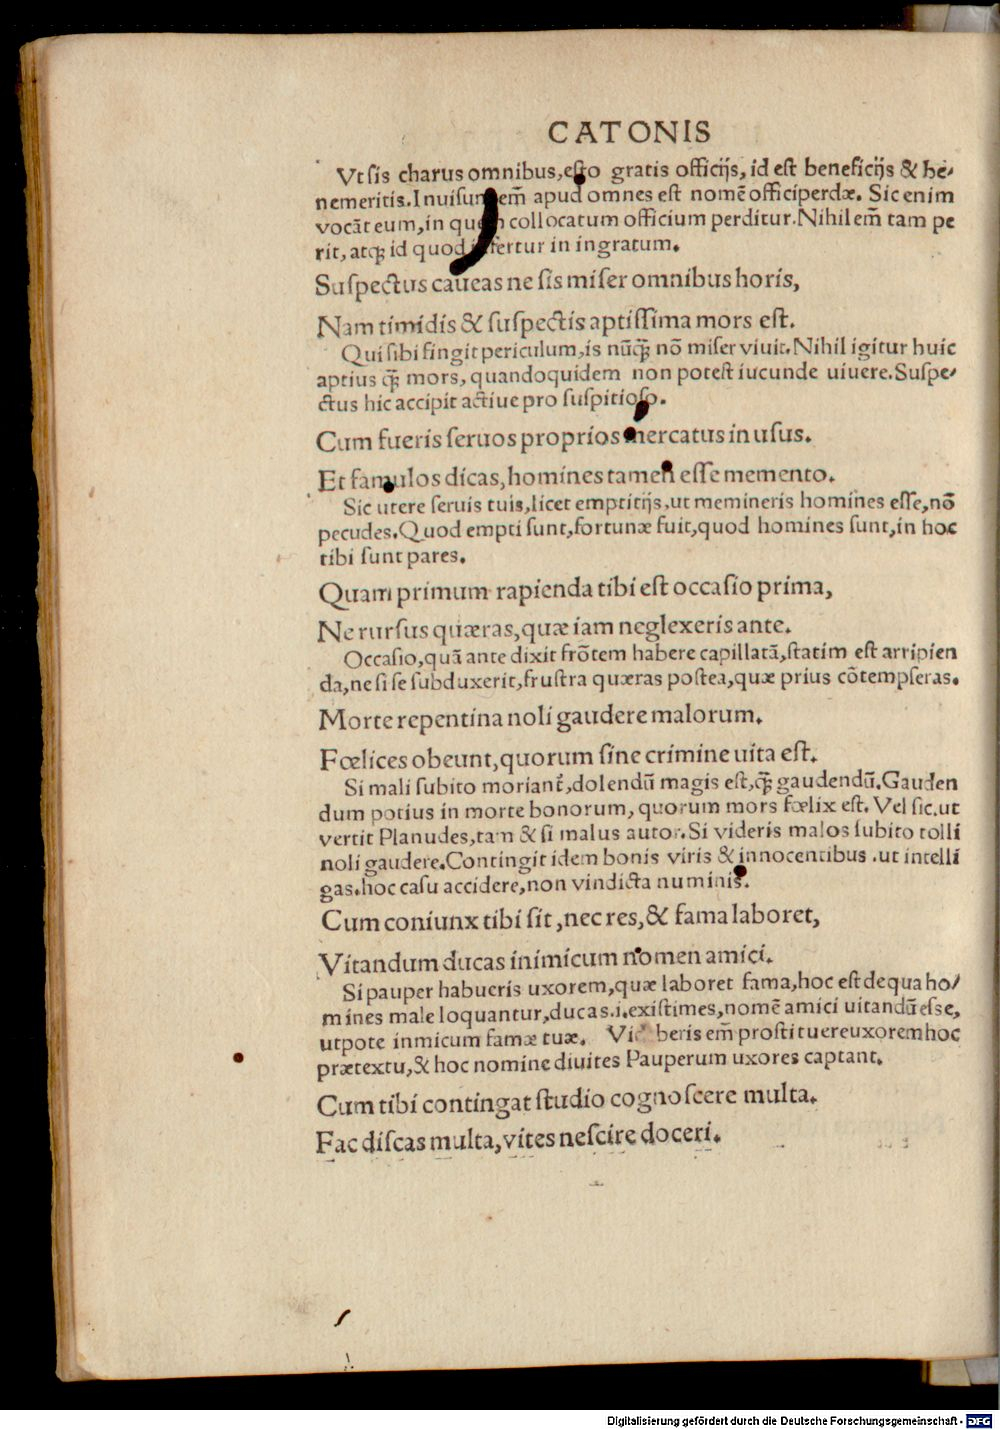 CATONIS
Vt sis charus omnibus, esto gratis officijs, id est beneficijs & be-
nemeritis. Inuisum em̃ apud omnes est nomẽ officiperdæ. Sic enim
vocãt eum, in quem collocatum officium perditur. Nihil em̃ tam pe
rit, atq; id quod fertur in ingratum.
Suspectus caueas ne sis miser omnibus horis,
Nam timidis & suspectis aptissima mors est.
Qui sibi fingit periculum, is nũq̃ nõ miser viuit. Nihil igitur huic
aptius q̃ mors, quandoquidem non potest iucunde uiuere. Suspe-
ctus hic accipit actiue pro suspitioso.
Cum fueris seruos proprios mercatus in usus.
Et famulos dicas, homines tamen esse memento.
Sic utere seruis tuis, licet emptitijs, ut memineris homines esse, nõ
pecudes. Quod empti sunt, fortunæ fuit, quod homines sunt, in hoc
tibi sunt pares.
Quam primum rapienda tibi est occasio prima,
Ne rursus quæras, quæ iam neglexeris ante.
Occasio, quã ante dixit frõtem habere capillatã, statim est arripien
da, ne si se subduxerit, frustra quæras postea, quæ prius cõtempseras.
Morte repentina noli gaudere malorum.
Fœlices obeunt, quorum sine crimine uita est.
Si mali subito moriant᷑, dolendũ magis est, q̃ gaudendũ. Gauden
dum potius in morte bonorum, quorum mors fœlix est. Vel sic. ut
vertit Planudes, tam & si malus autor. Si videris malos subito tolli
noli gaudere. Contingit idem bonis viris & innocentibus . ut intelli
gas. hoc casu accidere, non vindicta numinis.
Cum coniunx tibi sit, nec res, & fama laboret,
Vitandum ducas inimicum nomen amici.
Si pauper habueris uxorem, quæ laboret fama, hoc est de qua ho/
mines male loquantur, ducas .i. existimes, nomẽ amici uitandũ esse,
utpote inmicum famæ tuæ. beris em̃ prostituere uxorem hoc
prætextu, & hoc nomine diuites Pauperum uxores captant.
Cum tibi contingat studio cognoscere multa.
Fac discas multa, vites nescire doceri.
Digitalisierung gefördert durch die Deutsche Forschungsgemeinschaft - DFG